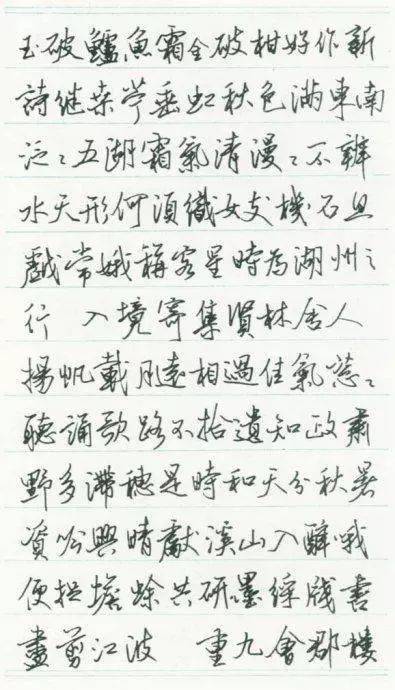 玉破鱸魚霜金破柑好作新
詩継桑苧垂虹秋色滿東南
泛〻五湖霜氣清漫〻不辨
水天形何須織女支機石且
戲常娥稱客星時為湖州之
行 入境寄集賢林舍人
揚帆載月遠相過佳氣葱〻
聽誦歌路不拾遺知政肅
野多滯穗是時和天分秋暑
資吟興晴獻溪山入醉哦
便捉蟾蜍共研墨綵牋書
盡剪江波 重九會郡樓